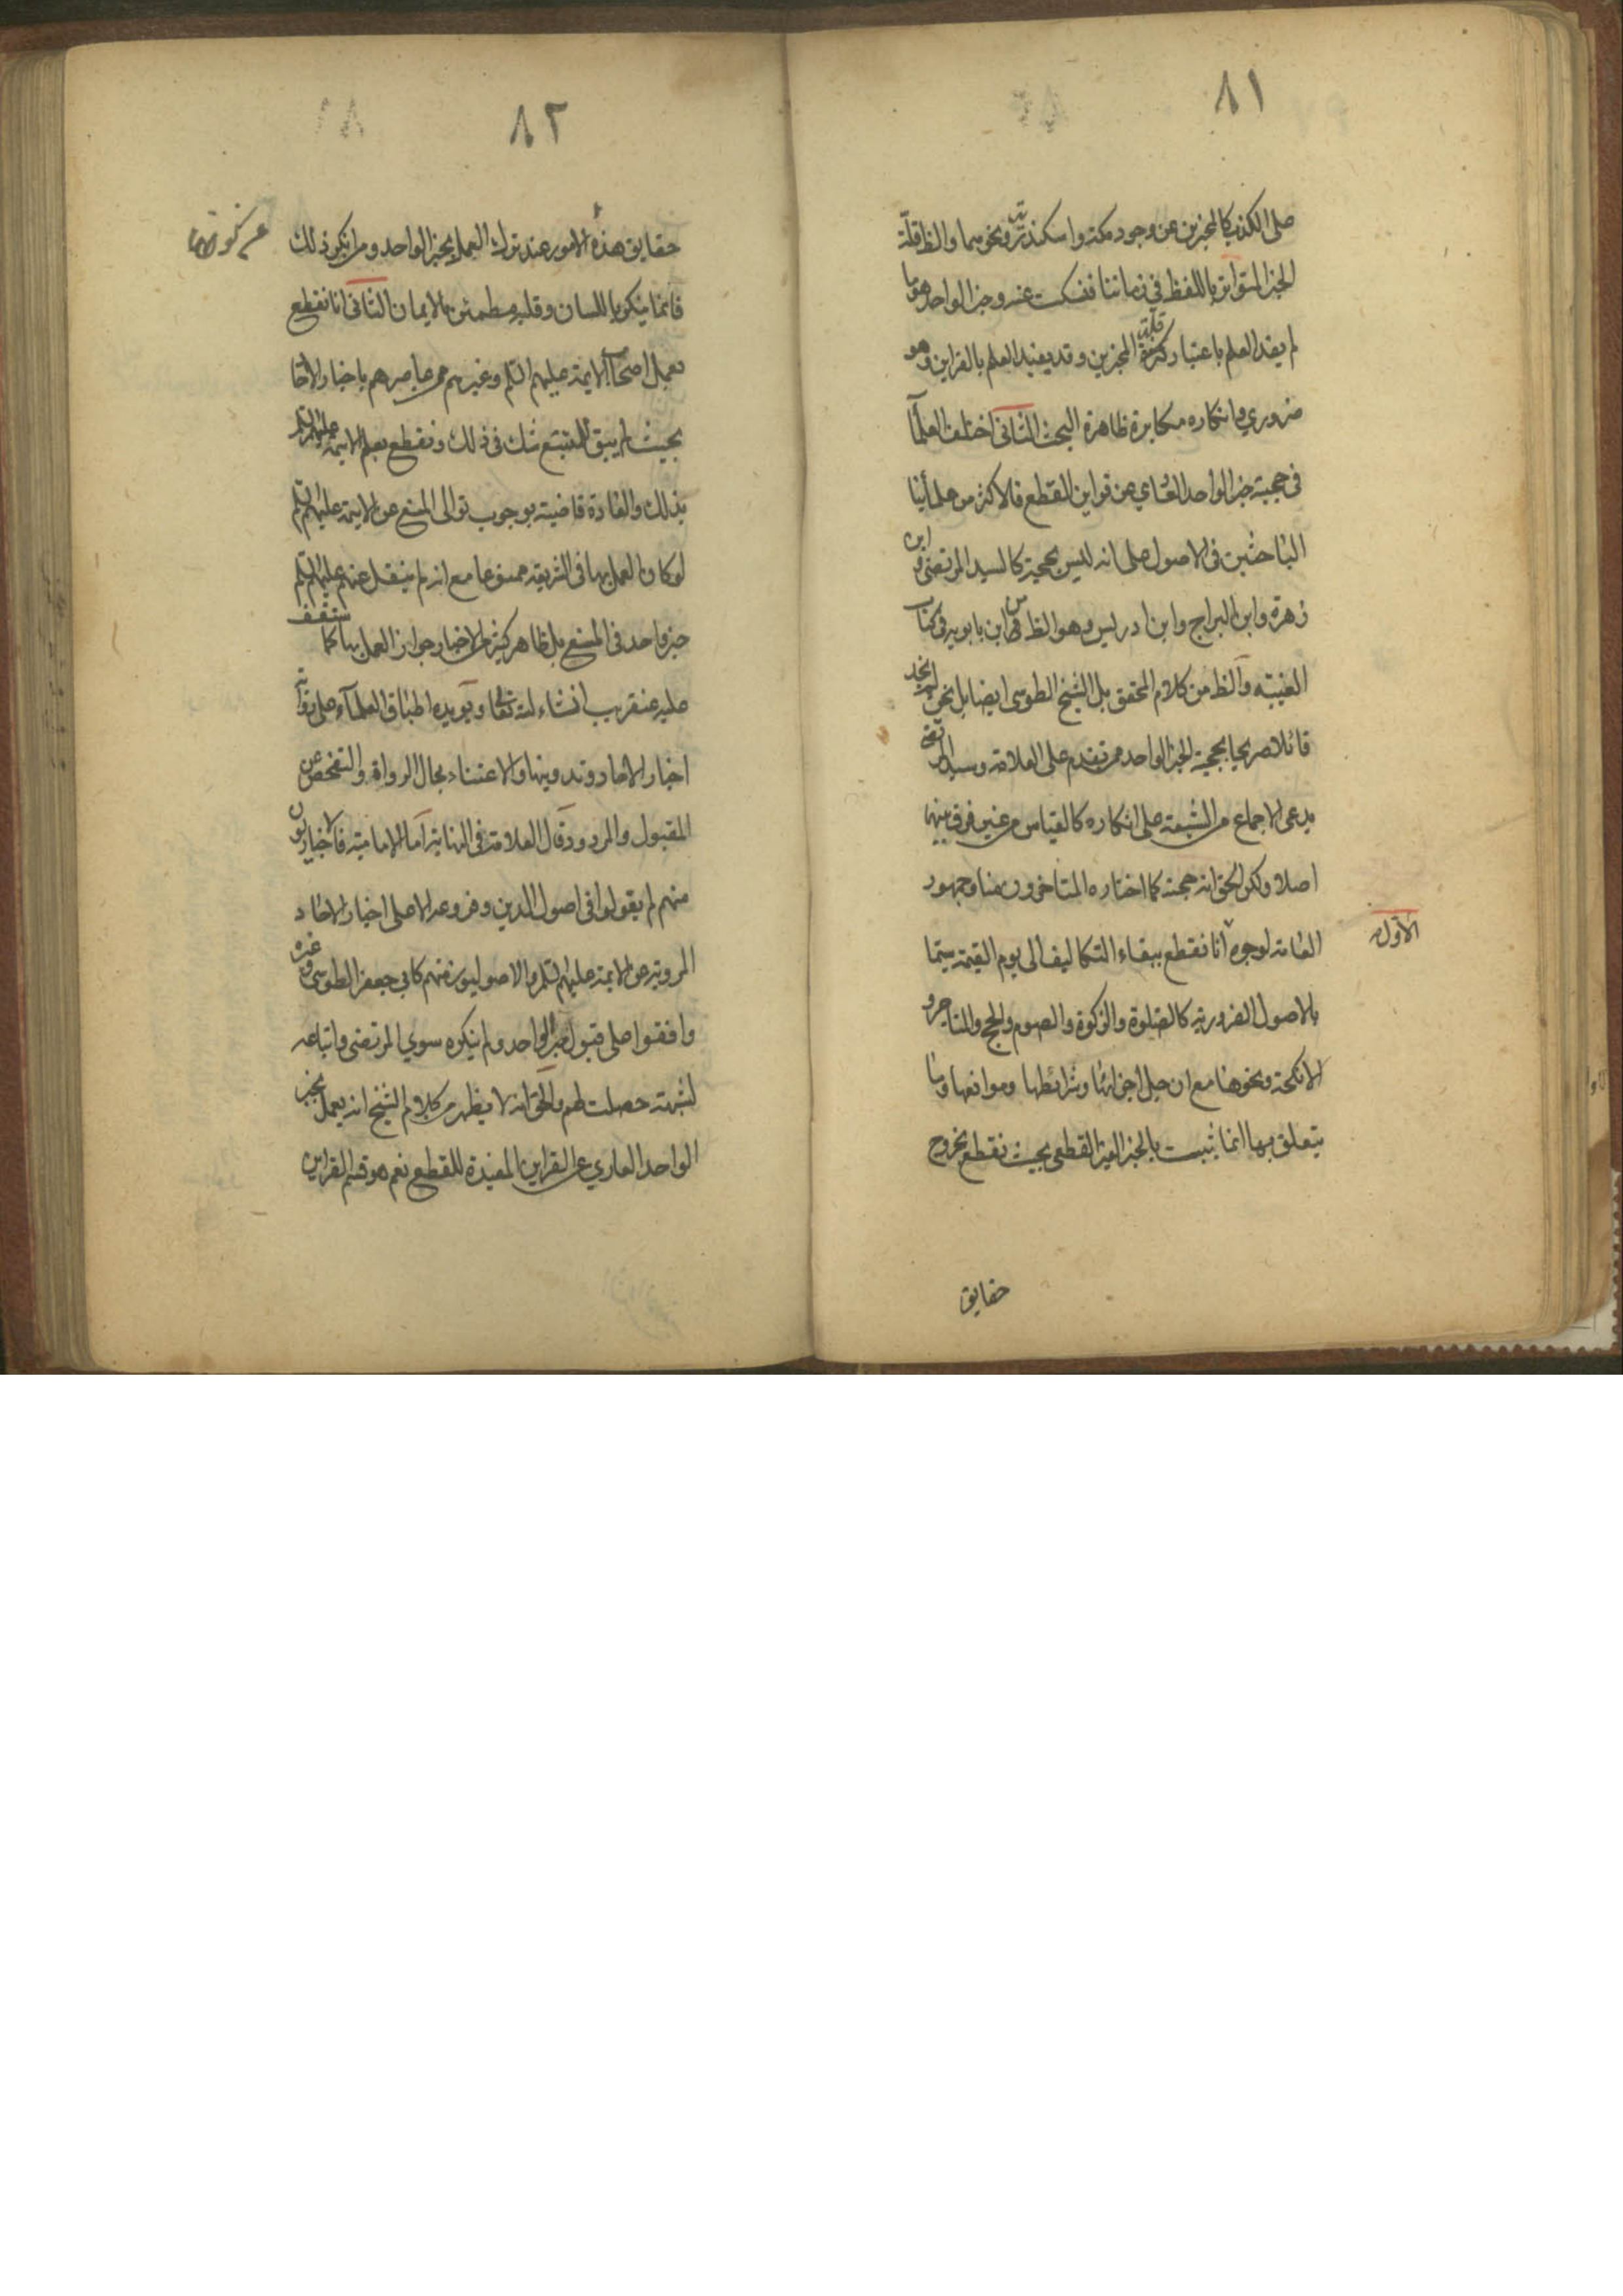 ٨١
على الكذب كالمخبرين عن وجود مكة واسكندرية ونحوهما والظ قلة
الخبر المتواتر باللفظ في زماننا فنسكت عنه وخبر الواحد هو ما
لم يفد العلم باعتبار كثرة المخبرين وقد يفيد العلم بالقراين وهو
ضروري وانكاره مكابرة ظاهرة البحث الثاني اختلف العلمآ
في حجية خبر الواحد العاري عن قراين القطع فالاكثر من علمائنا
الباحثين في الاصول على انه ليس بحجية كالسيد المرتضى وابن
زهرة وابن البراج وابن ادريس وهو الظ من ابن بابويه في كتاب
الغيبة والظ من كلام المحقق بل الشيخ الطوسي ايضا بل نحن لم نجد
قائلا صريحا بحجية الخبر الواحد ممن تقدم على العلامة وسيد المرتضى
يدعى الاجماع من الشيعة على انكاره كالقياس من غير فرق بينهما
اصلا ولكن الحق انه حجة كما اختاره المتاخرون منا وجمهور
العامة لوجوه انا نقطع ببقاء التكاليف الى يوم القيمة سيما
الاول
بالاصول الضرورية كالصلوة والزكوة والصوم والحج والمتاجر و
الانكحة ونحوها مع ان جل اجزائها وشرائطها وموانعها وما
يتعلق بها انما يثبت بالخبر الغير القطعي بحيث نقطع بخروج
حقايق
٨٢
حقايق هذه الامور عند ترك العمل بخبر الواحد ومن انكر ذلك
فانما ينكر باللسان وقلبه مطمئن بالايمان الثاني انا نقطع
بعمل اصحاب الايمة عليهم السلم وغيرهم ممن عاصرهم باخبار الاحا
بحيث لم يبق للمتتبع شك في ذلك ونقطع بعلم الايمة عليهم السلم
بذلك والعادة قاضية بوجوب توالى المنع عن الايمة عليهم السلم
لو كان العمل بها في الشريعة ممنوعا مع انه لم ينقل عنهم عليهم السلم
خبر واحد في المنع بل ظاهر كثير من الاخبار جواز العمل بها كما ستقف
عليه عنقريب انشاء الله تعالى ويؤيده اطباق العلمآء على رواية
اخبار الاحاد وتدوينها والاعتناء بحال الرواة والتفحص عن
المقبول والمردود قال العلامة في النهاية اما الامامية فالاخباريون
منهم لم يقولوا في اصول الدين وفروعه الا على اخبار الاحاد
المروية عن الايمة عليهم السلم والاصوليون منهم كابي جعفر الطوسي وغيره
وافقوا على قبول خبر الواحد ولم ينكره سوي المرتضى واتباعه
لشبهة حصلت لهم والحق انه لا يظهر من كلام الشيخ انه يعمل بخبر
الواحد العاري عن القراين المفيدة للقطع نعم هو قسم القراين